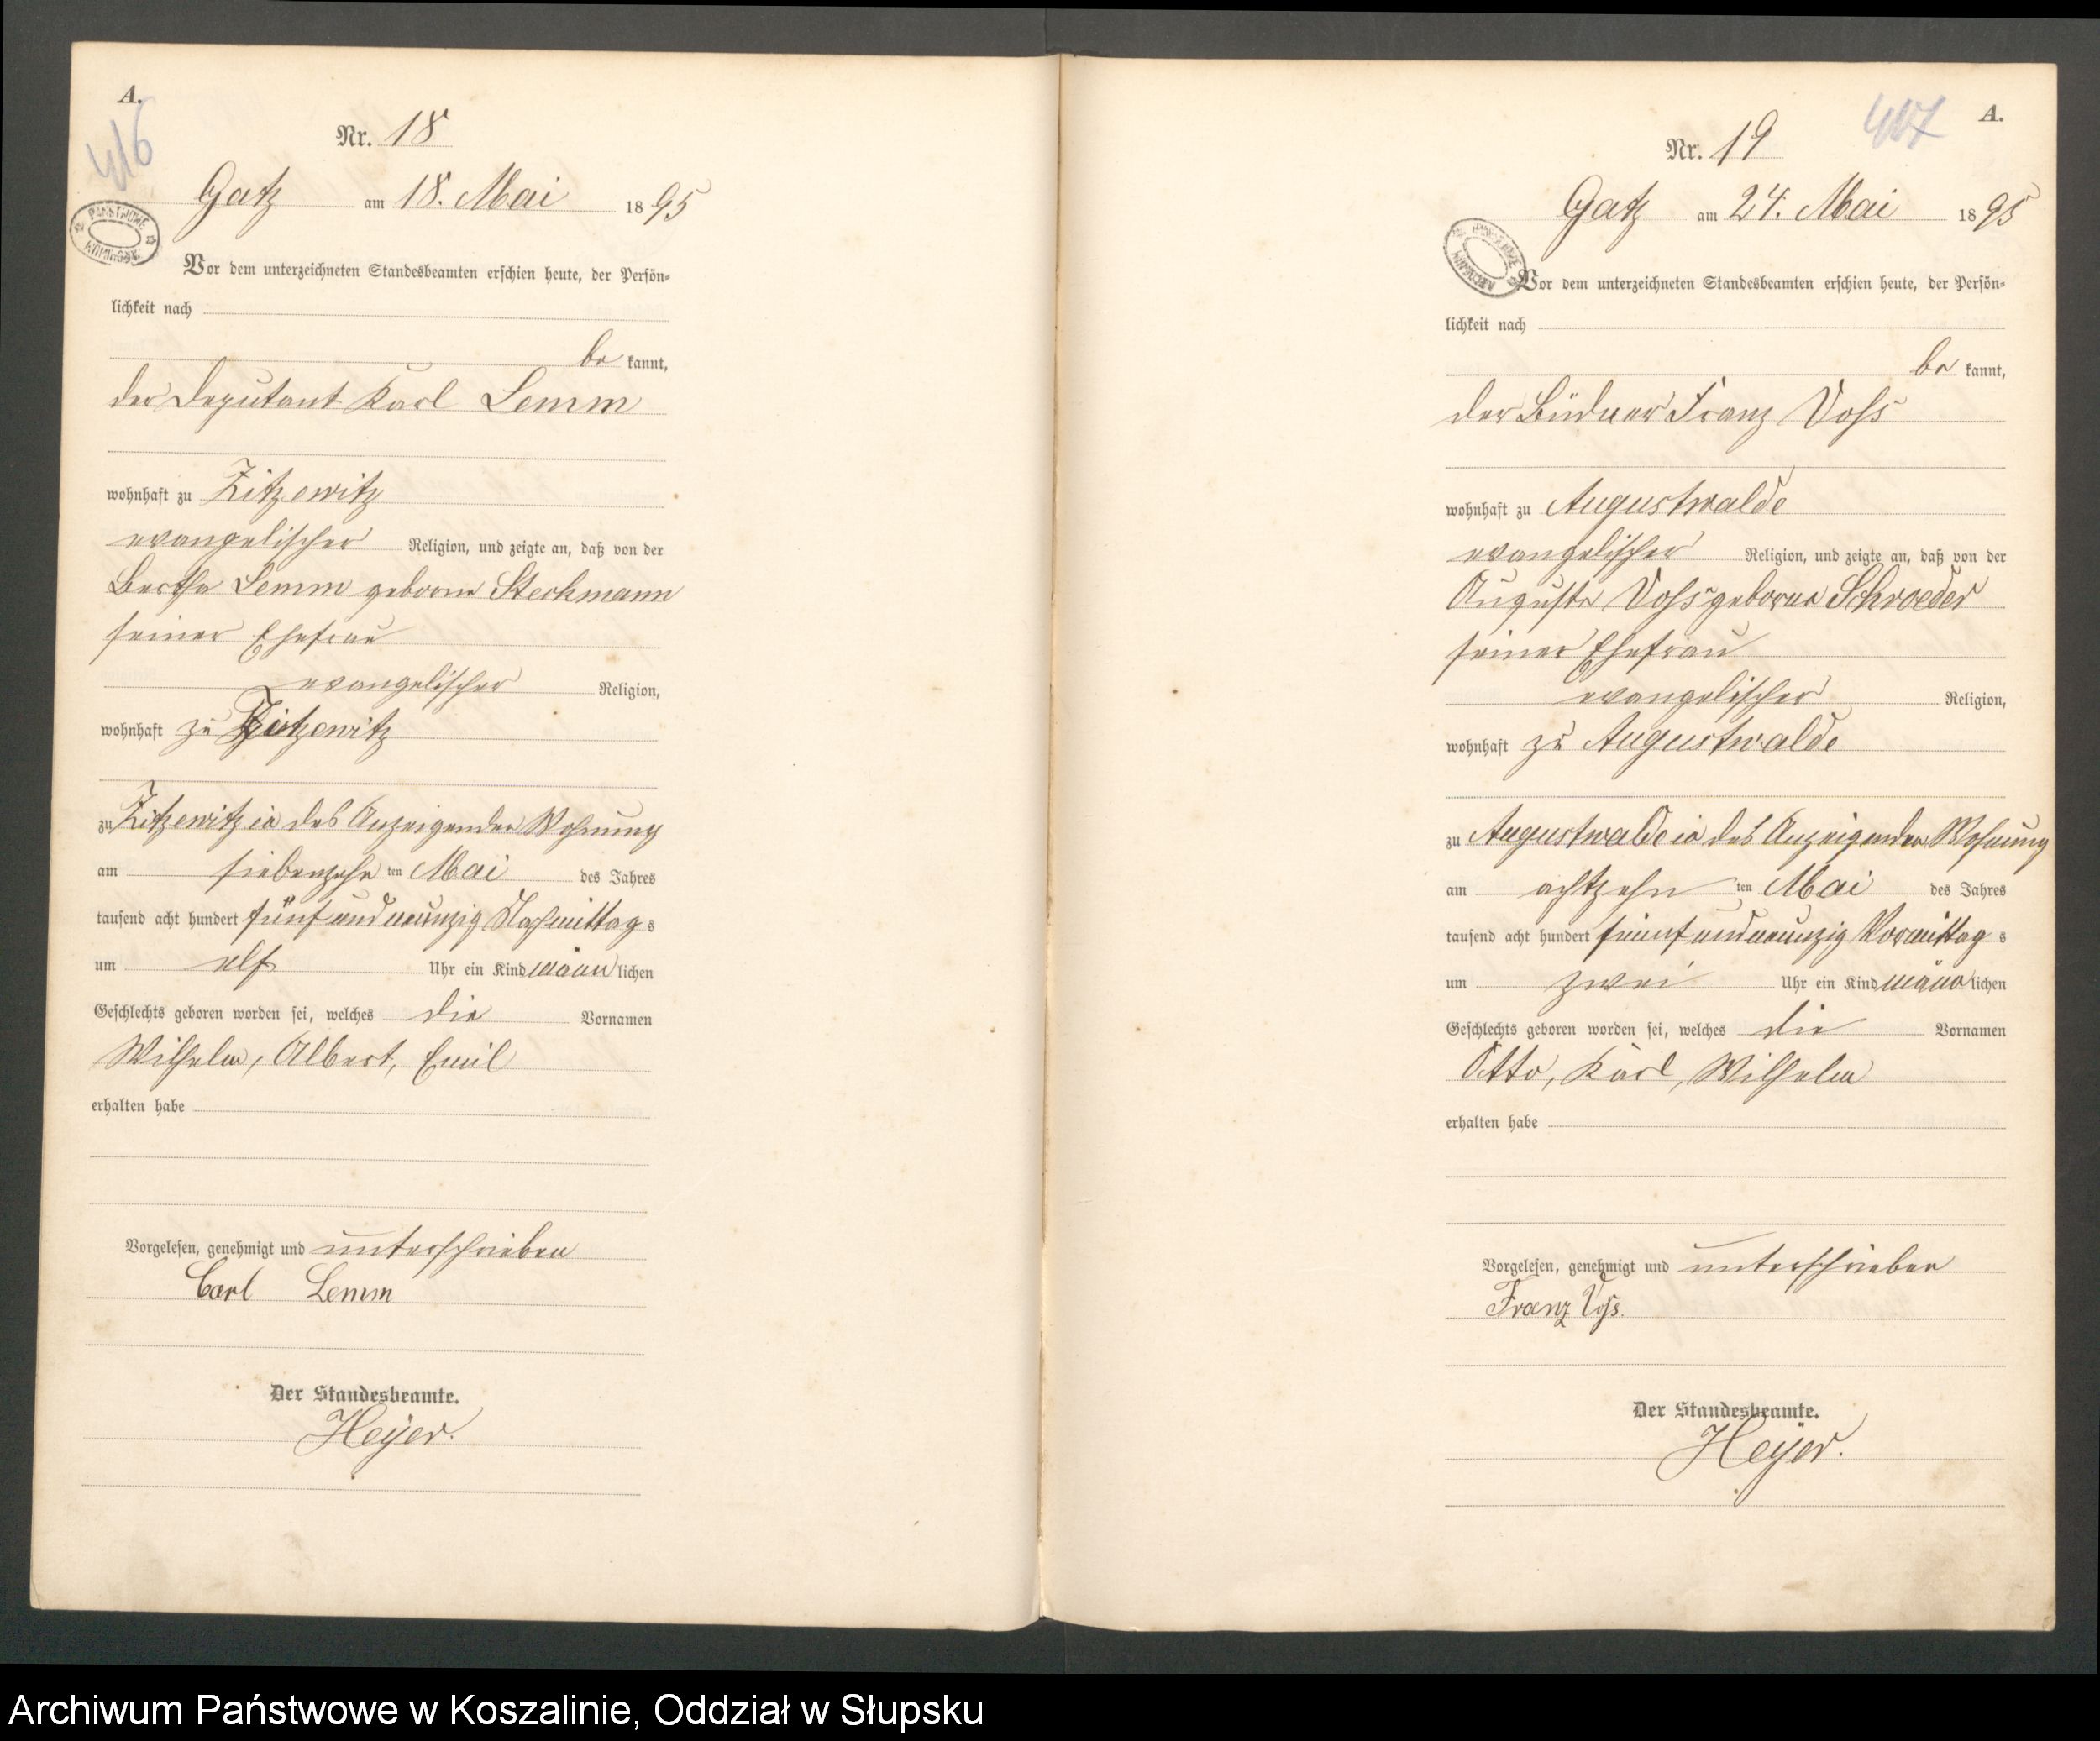 A.
416
Nr. 18
Gatz am 18. Mai 1895
Vor dem unterzeichneten Standesbeamten erschien heute, der Persön-
lichkeit nach
be kannt,
der Deputant Karl Lemm
wohnhaft zu Zitzewitz
evangelischer Religion, und zeigte an, daß von der
Bertha Lemm geborne Steckmann
seiner Ehefrau
evangelischer Religion,
wohnhaft zu Zitzewitz
zu Zitzewitz in des Anzeigenden Wohnung
am siebenzehn ten Mai des Jahres
tausend acht hundert fünf und neunzig Nachmittag s
um elf Uhr ein Kind männ lichen
Geschlechts geboren worden sei, welches die Vornamen
Wilhelm, Albert, Emil
erhalten habe
Vorgelesen, genehmigt und unterschrieben
Carl Lemm
Der Standesbeamte.
Heyer.
A.
Nr. 19
Gatz am 24. Mai 1895
Vor dem unterzeichneten Standesbeamten erschien heute, der Persön-
lichkeit nach
be kannt,
der Büdner Franz Voss
wohnhaft zu Augustwalde
evangelischer Religion, und zeigte an, daß von der
Auguste Voss geborne Schroeder
seiner Ehefrau
evangelischer Religion,
wohnhaft zu Augustwalde
zu Augustwalde in des Anzeigenden Wohnung
am achtzehn ten Mai des Jahres
tausend acht hundert fünf und neunzig Vormittag s
um zwei Uhr ein Kind männ lichen
Geschlechts geboren worden sei, welches die Vornamen
Otto, Karl, Wilhelm
erhalten habe
Vorgelesen, genehmigt und unterschrieben
Franz Voss.
Der Standesbeamte.
Heyer.
Archiwum Państwowe w Koszalinie, Oddział w Słupsku